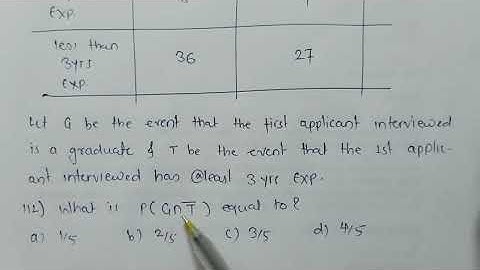 Exp.
less than 36 27
3yrs
Exp.
Let G be the event that the first applicant interviewed
is a graduate & T be the event that the 1st applic-
ant interviewed has @least 3 yrs exp.
112) What is P(G∩T̅) equal to?
a) 1/5 b) 2/5 c) 3/5 d) 4/5